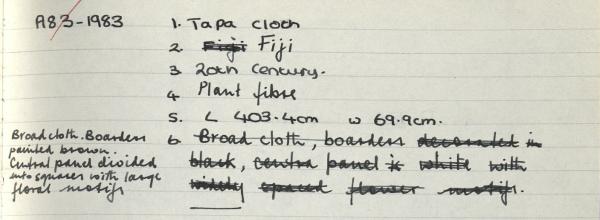 A83-1983
1. Tapa cloth
2. Fiji Fiji
3. 20th Century.
4. Plant fibre
5. L 403.4cm w 69.9cm.
6. Broad cloth, boarders decorated in
black, centra panel is white with
widely spaced flower motifs.
Broadcloth. Boarders
painted brown.
Central panel divided
into squares with large
floral motifs